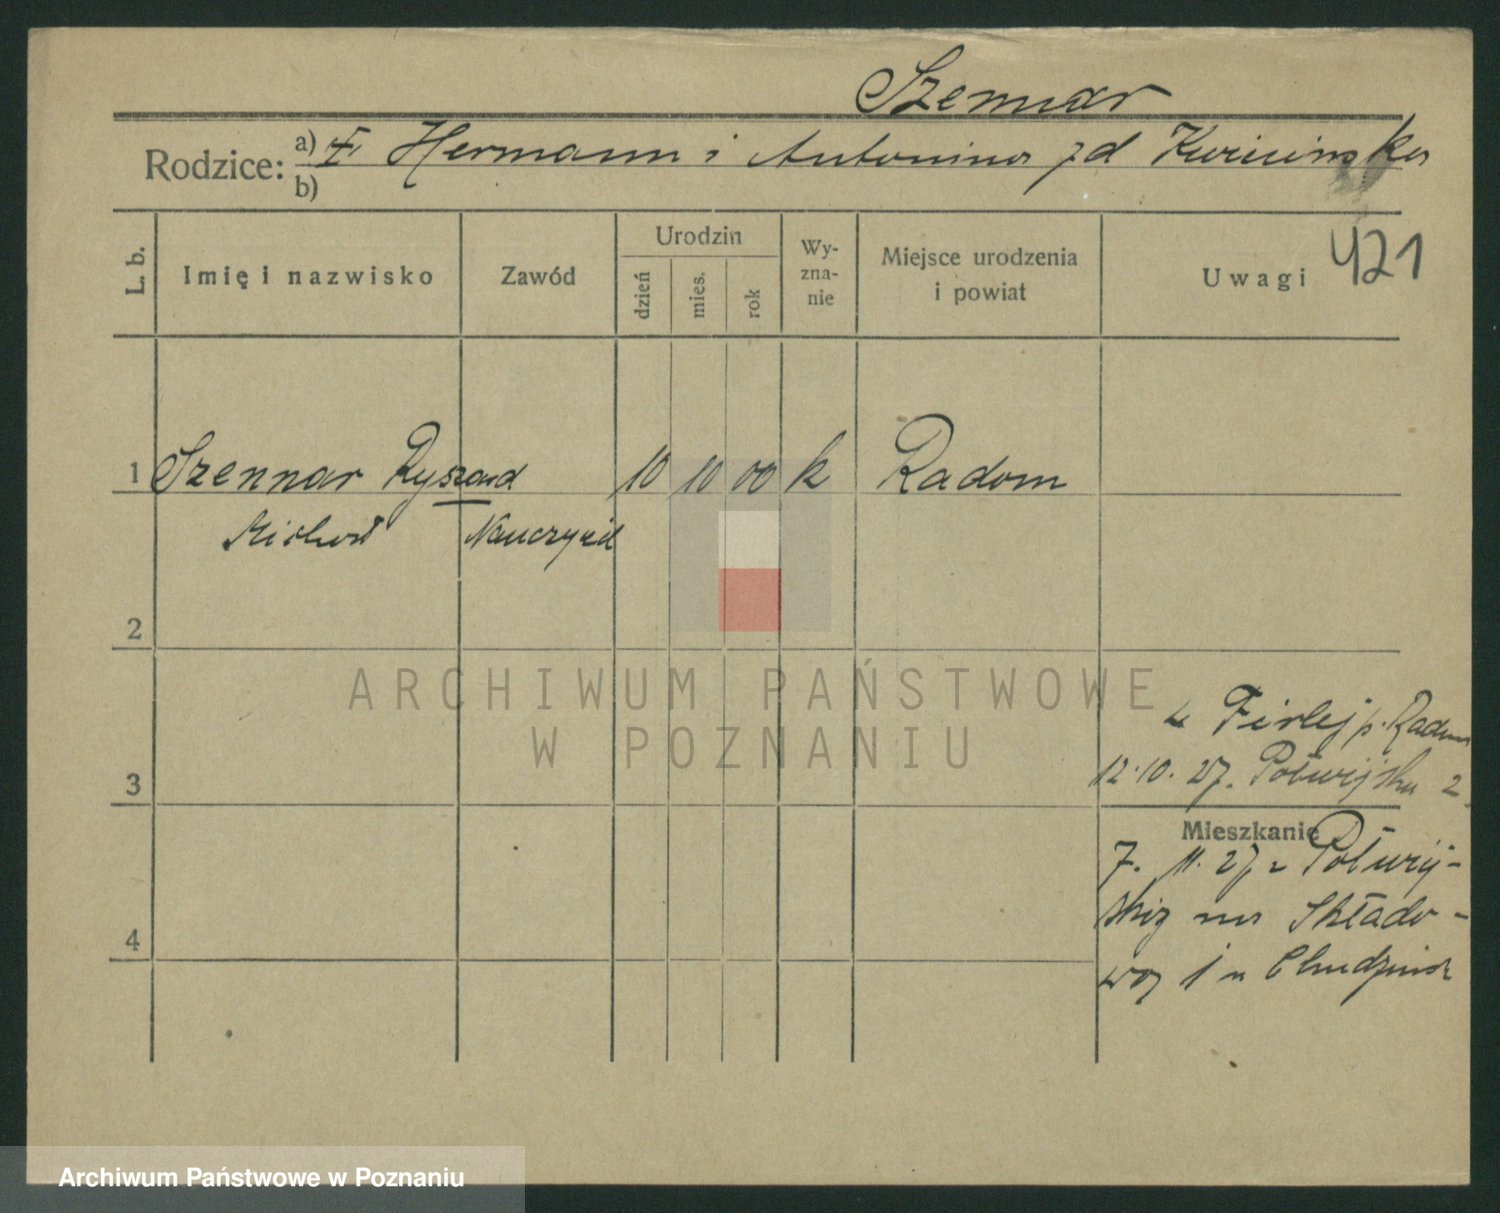 Szennar
Rodzice: a) Hermann i Antonina zd
b)
421
L. b.
Imię i nazwisko
Zawód
Urodzin
dzień
mies.
rok
Wy-
zna-
nie
Miejsce urodzenia
i powiat
Uwagi
1 Szennar Ryszard 10 10 00 k Radom
Michał Nauczyciel
2
z Firlej p. Radom
3 12.10.27. Półwiejska 2
Mieszkanie
7. 11. 27 z Półwiej-
skiej na Składo-
4
wą 1 u
ARCHIWUM PAŃSTWOWE
W POZNANIU
Archiwum Państwowe w Poznaniu